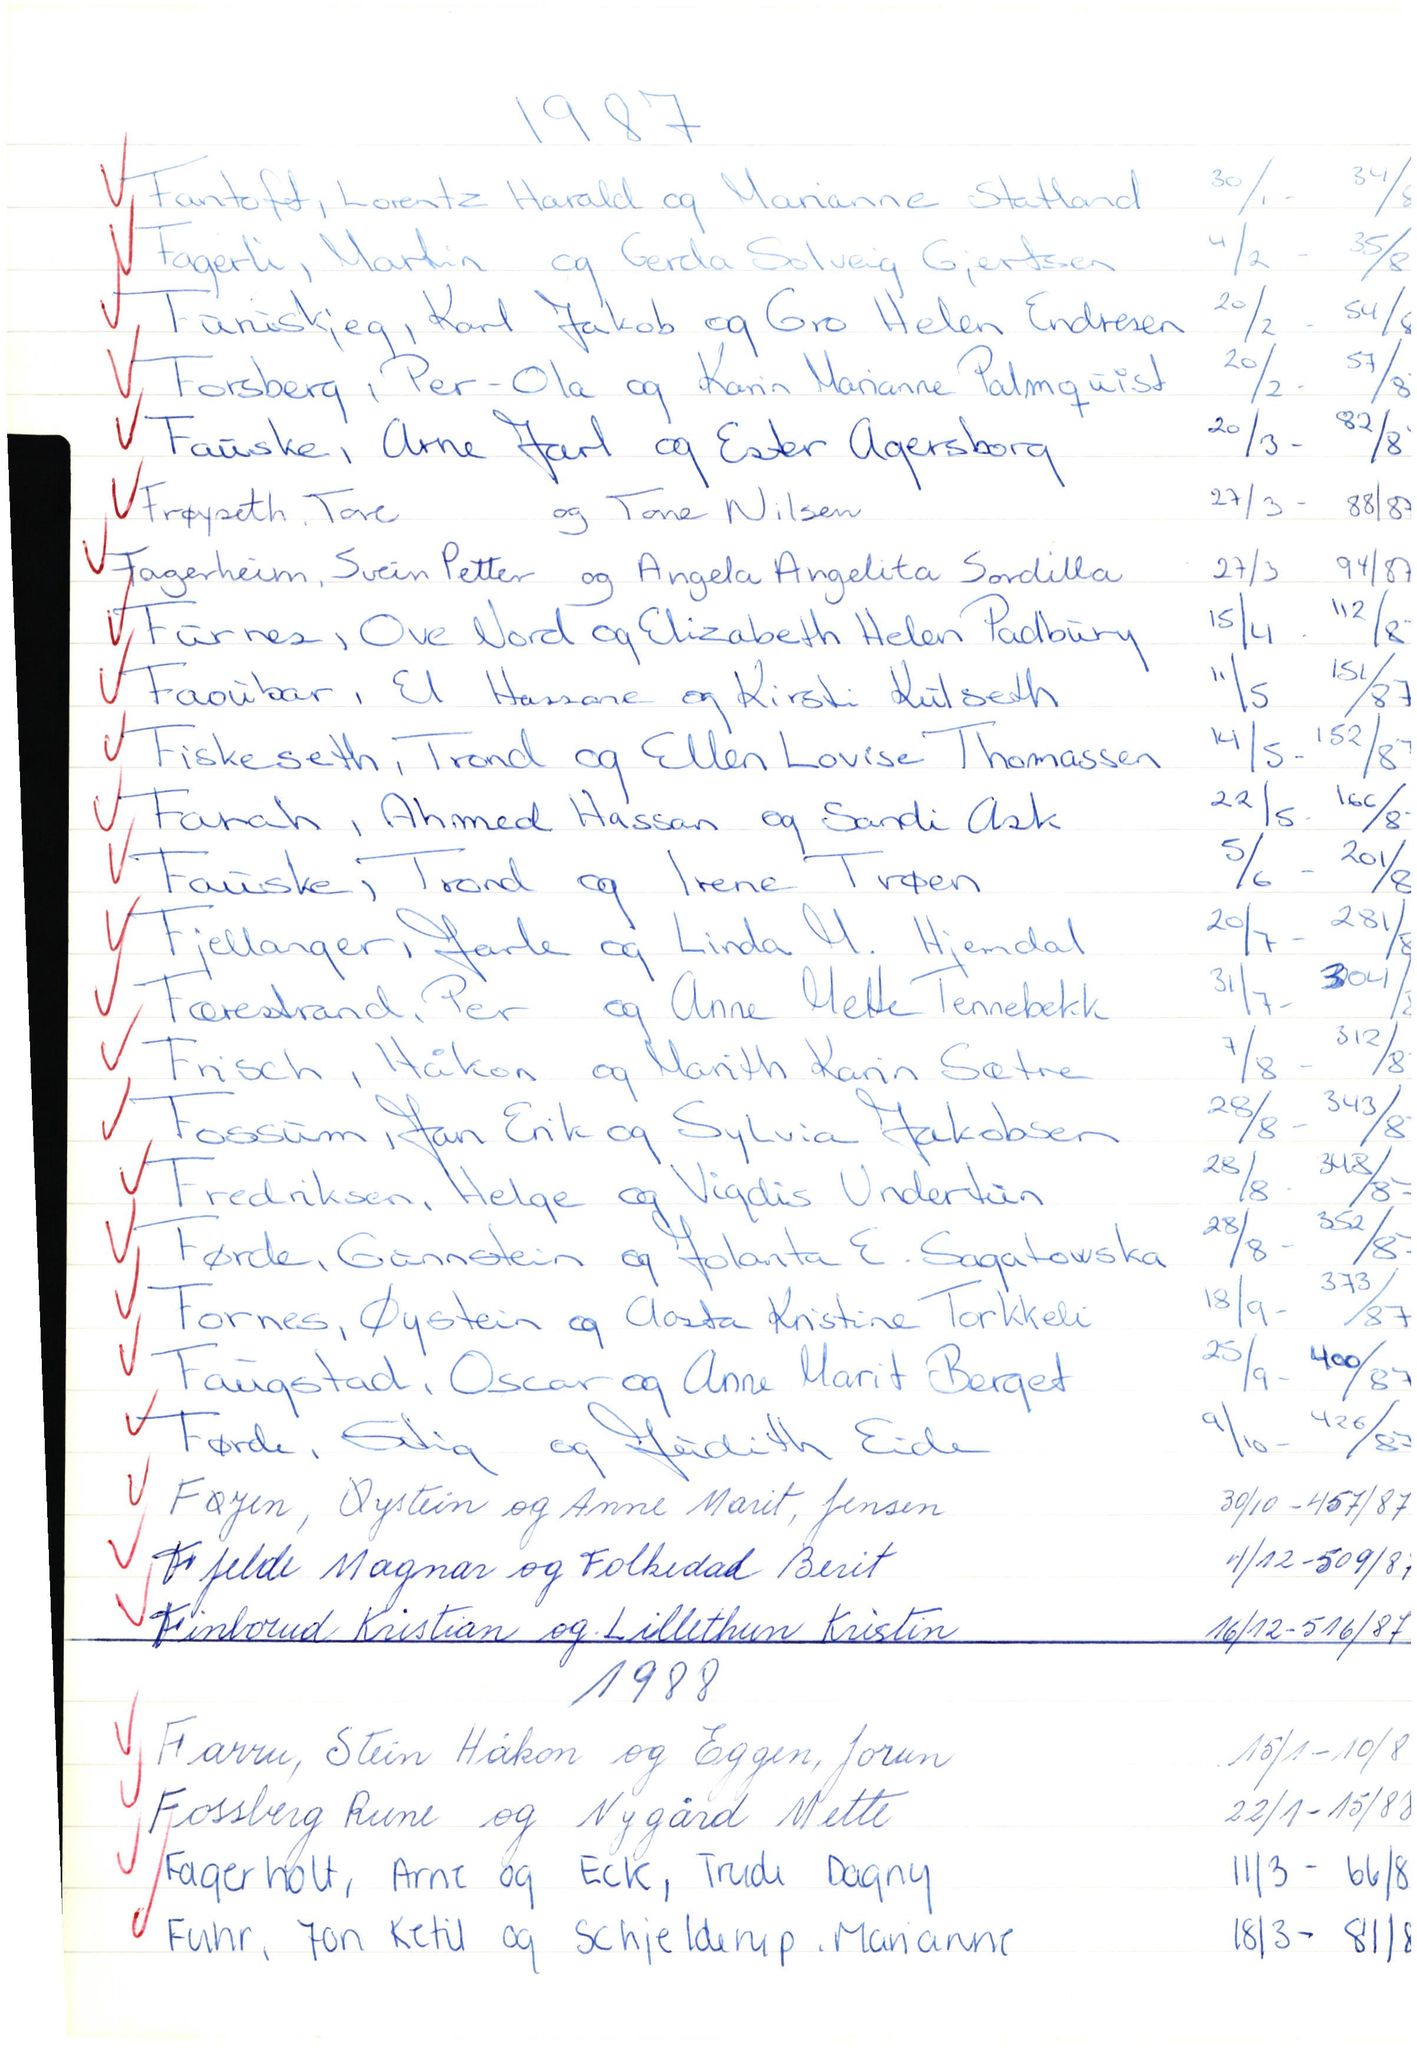 1987
Fantoft, Lorentz Harald og Marianne Statland 30/1 - 34/8
Fagerli, Martin og Gerda Solveig Gjertsen 4/2 - 35/8
Furuskjeg, Karl Jakob og Gro Helen Endresen 20/2 - 54/8
Forsberg, Per-Ola og Karin Marianne Palmquist 20/2 - 57/8
Fauske, Arne Jarl og Ester Agersborg 20/3 - 82/8
Frøyseth, Tore og Tone Nilsen 27/3 - 88/87
Fagerheim, Svein Petter og Angela Angelita Sordilla 27/3 94/87
Furnes, Ove Nord og Elizabeth Helen Padbury 15/4 - 112/8
Faoubar, El Hassane og Kirsti Kulseth 11/5 151/87
Fiskeseth, Trond og Ellen Lovise Thomassen 14/5 - 152/87
Farah, Ahmed Hassan og Sandi Ask 22/5 - 166/8
Fauske, Trond og Irene Trøen 5/6 - 201/8
Fjellanger, Jarle og Linda M. Hjemdal 20/7 - 281/8
Færestrand, Per og Anne Mette Tennebekk 31/7 - 304/8
Frisch, Håkon og Marith Karin Sætre 7/8 - 312/8
Fossum, Jan Erik og Sylvia Jakobsen 28/8 - 343/8
Fredriksen, Helge og Vigdis Undertun 28/8 - 348/87
Førde, Gunnstein og Jolanta E. Sagatowska 28/8 - 352/87
Fornes, Øystein og Aasta Kristine Torkkeli 18/9 - 373/87
Faugstad, Oscar og Anne Marit Berget 25/9 - 400/87
Førde, Stig og Judith Eide 9/10 - 426/87
Føyen, Øystein og Anne Marit, Jensen 30/10 - 457/87
Fjelde Magnar og Folkedad Berit 11/12 - 509/87
Finborud Kristian og Lillethun Kristin 16/12 - 516/87
1988
Farru, Stein Håkon og Eggen, Jorun 15/1 - 10/8
Fossberg Rune og Nygård Mette 22/1 - 15/88
Fagerholt, Arne og Eck, Trude Dagny 11/3 - 66/8
Fuhr, Jon Ketil og Schjelderup, Marianne 18/3 - 81/8